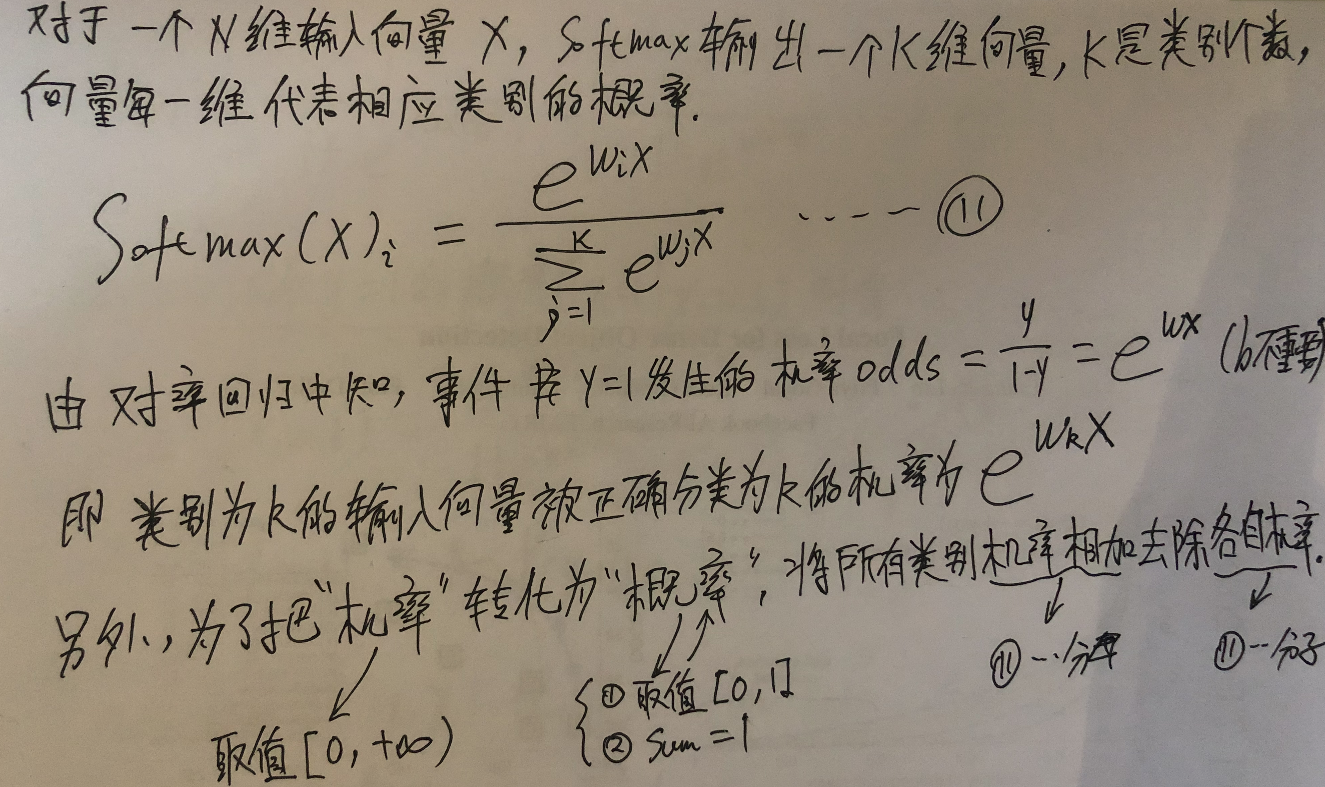 对于一个N维输入向量X, Softmax输出一个K维向量,K是类别个数,
向量每一维代表相应类别的概率.
Softmax(X)_i = e^{W_iX} / \sum_{j=1}^{K} e^{W_jX} ····-- ⑪
由对率回归中知, 事件 y=1发生的机率odds = y/(1-y) = e^{WX} (b不重要
即 类别为k的输入向量被正确分类为k的机率为 e^{W_kX}
另外,为了把"机率"转化为"概率",将所有类别机率相加去除各自机率.
⑪--分母 ⑪--分子
取值[0,+∞) { ①取值[0,1]
②Sum=1